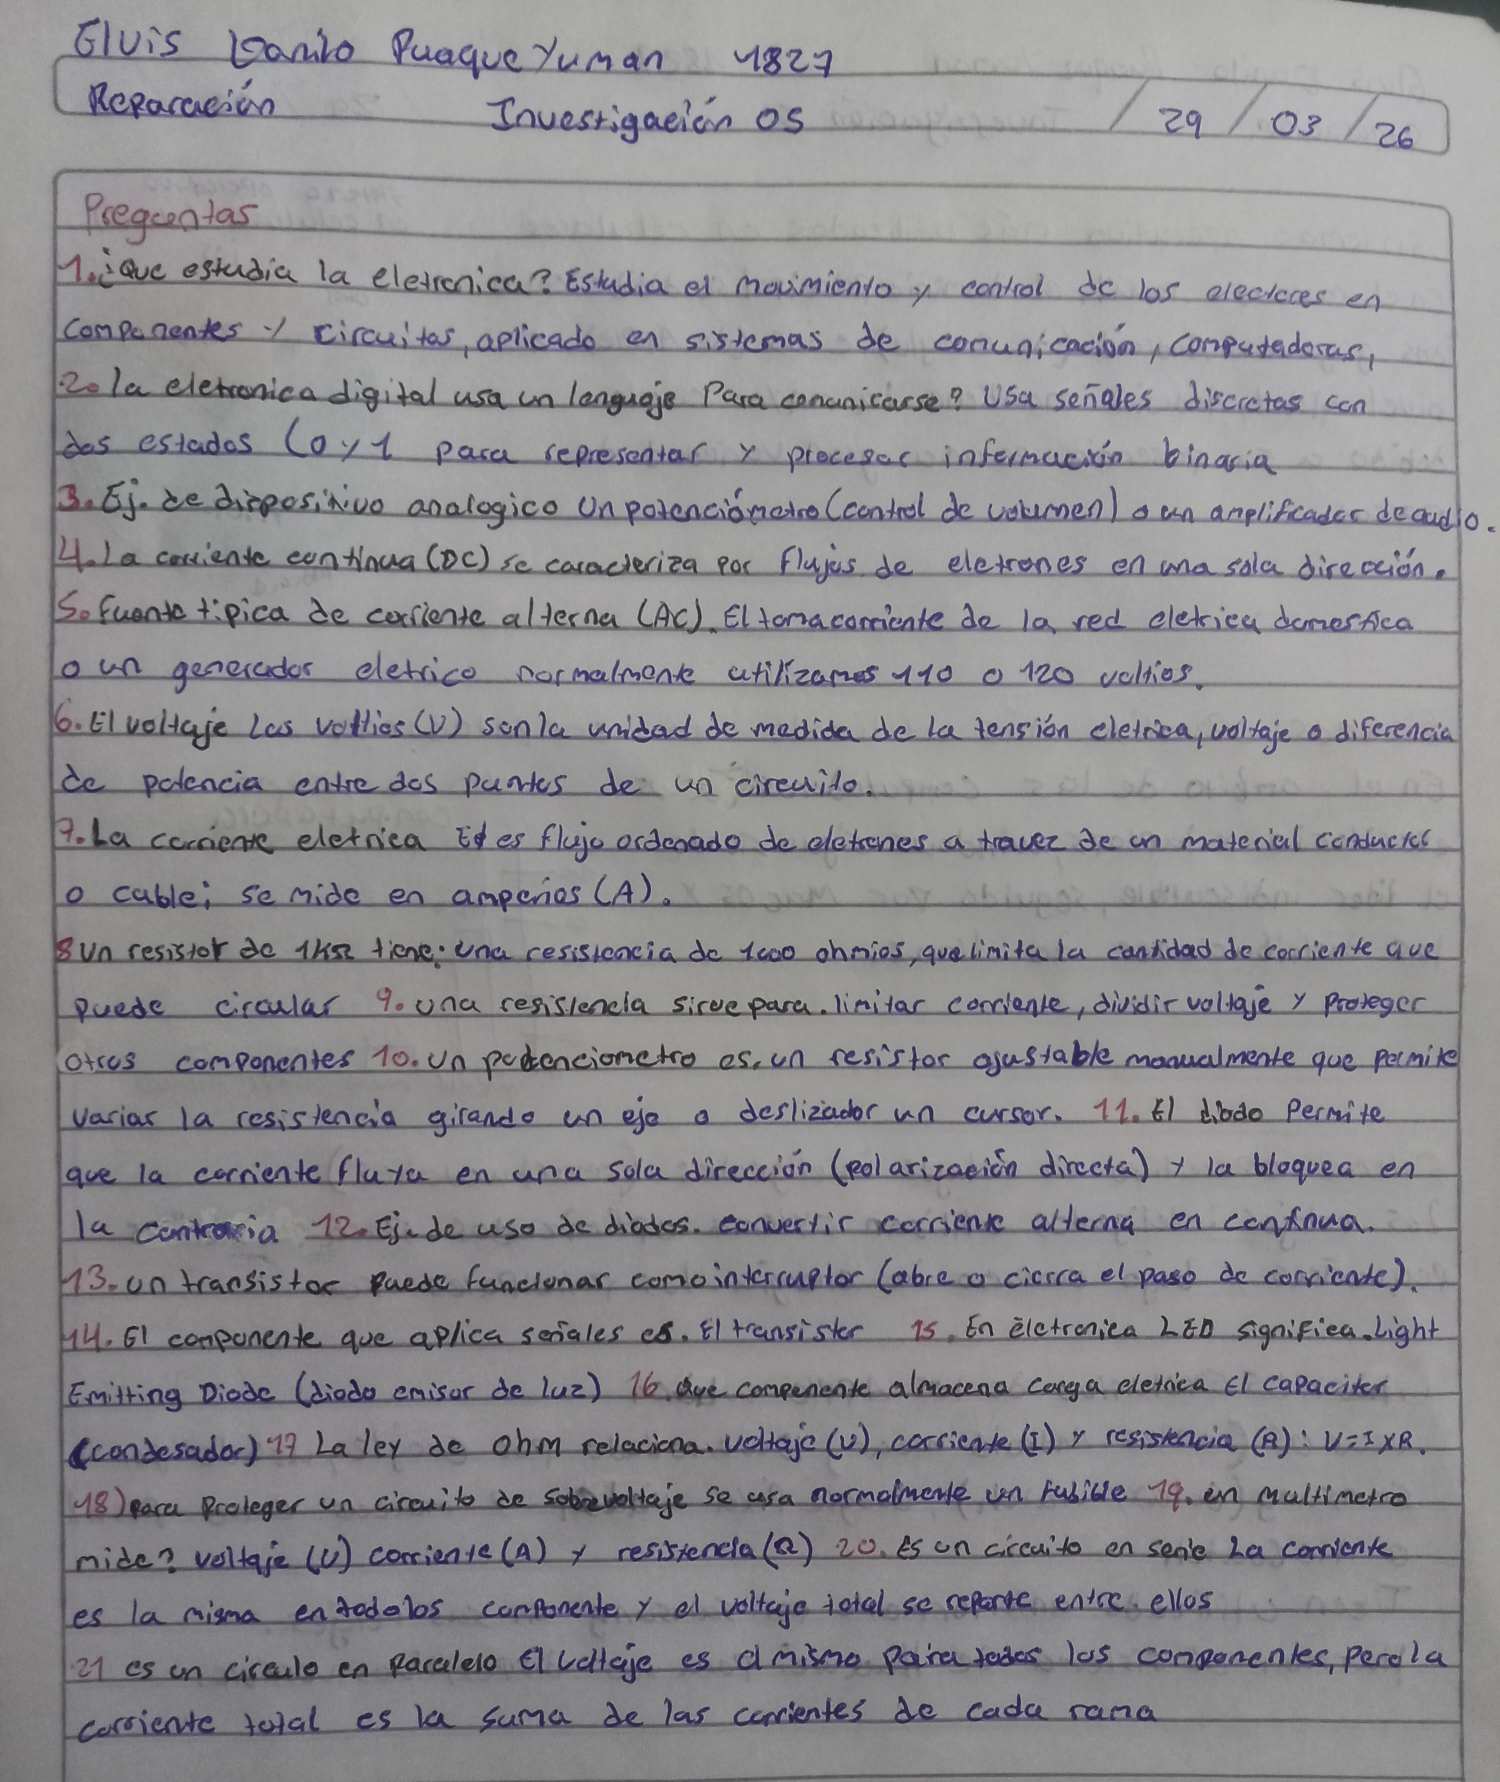 Elvis Danilo Puaque Yuman 4827
Reparación Investigación 05 29 / 03 / 26
Preguntas
1. ¿Que estudia la eletronica? Estudia el movimiento y control de los electores en
componentes y circuitos, aplicado en sistemas de comunicación, computadoras,
2. la eletronica digital usa un lenguaje Para comunicarse? Usa señales discretas con
dos estados (0 y 1 para representar y procesar información binaria
3. Ej. de dispositivo analogico Un potenciómetro (control de volumen) o un amplificador de audio.
4. La corriente continua (DC) se caracteriza por flujos de eletrones en una sola dirección.
5. fuente tipica de corriente alterna (AC). El tomacorriente de la red eletrica domestica
o un generador eletrico normalmente utilizamos 110 o 120 voltios.
6. El voltaje Los voltios (V) son la unidad de medida de la tensión eletrica, voltaje o diferencia
de potencia entre dos puntos de un circuito.
7. La corriente eletrica es flujo ordenado de eletrones a travez de un material conductor
o cable; se mide en amperios (A).
8 Un resistor de 1kΩ tiene: una resistencia de 1000 ohmios, que limita la cantidad de corriente que
puede circular 9. una resistencia sirve para. limitar corriente, dividir voltaje y proteger
otros componentes 10. un potenciometro es. un resistor ajustable manualmente que permite
variar la resistencia girando un eje o deslizador un cursor. 11. El diodo Permite
que la corriente fluya en una sola dirección (polarización directa) y la bloquea en
la contraria 12. Ej. de uso de diodos. convertir corriente alterna en continua.
13. un transistor puede funcionar como interruptor (abre o cierra el paso de corriente).
14. El componente que aplica señales es. El transistor 15. En eletronica LED significa. Light
Emitting Diode (diodo emisor de luz) 16. que componente almacena carga eletrica El capacitor
(condesador) 17 La ley de Ohm relaciona. voltaje (V), corriente (I) y resistencia (R): V=IXR.
18) para proteger un circuito de sobrevoltaje se usa normalmente un fusible 19. un multimetro
mide? voltaje (V) corriente (A) y resistencia (Ω) 20. Es un circuito en serie La corriente
es la misma en todo los componente y el voltaje total se reparte entre ellos
21 es un circulo en paralelo El voltaje es el mismo para todos los componentes, pero la
corriente total es la suma de las corrientes de cada rama